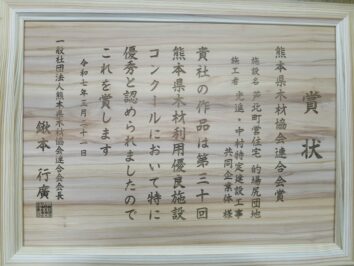 賞状
熊本県木材協会連合会賞
施設名 芦北町営住宅 的場尻団地
施工者 光進・中村特定建設工事
共同企業体 様
貴社の作品は第三十回
熊本県木材利用優良施設
コンクールにおいて特に
優秀と認められましたので
これを賞します
令和七年三月三十一日
一般社団法人熊本県木材協会連合会会長
鍬本 行廣